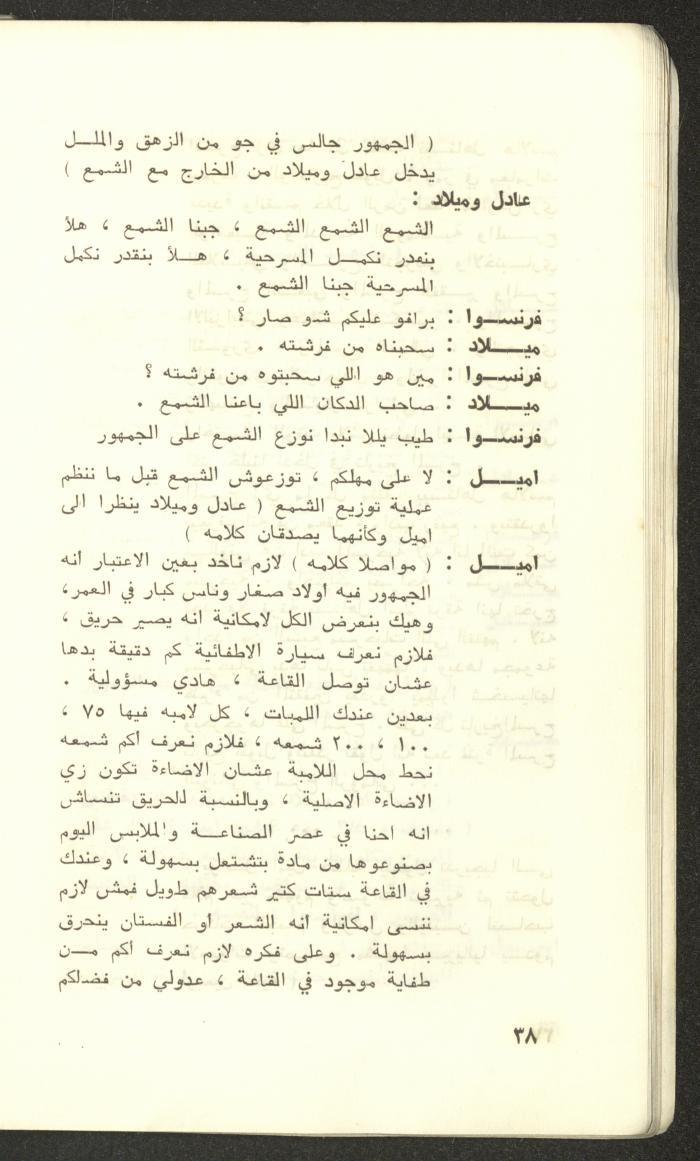 ( الجمهور جالس في جو من الزهق والملـل
يدخل عادل وميلاد من الخارج مع الشمع )
عادل وميلاد :
الشمع الشمع الشمع ، جبنا الشمع ، هلأ
بنقدر نكمـل المسرحية ، هـلأ بنقدر نكمل
المسرحية جبنا الشمع .
فرنسـوا : برافو عليكم شو صار ؟
ميـلاد : سحبناه من فرشته .
فرنسـوا : مين هو اللي سحبتوه من فرشته ؟
ميـلاد : صاحب الدكان اللي باعنا الشمع .
فرنسـوا : طيب يللا نبدا نوزع الشمع على الجمهور
اميـل : لا على مهلكم ، توزعوش الشمع قبل ما ننظم
عملية توزيع الشمع ( عادل وميلاد ينظرا الى
اميل وكأنهما يصدقان كلامه )
اميـل : ( مواصلا كلامه ) لازم ناخد بعين الاعتبار انه
الجمهور فيه اولاد صغار وناس كبار في العمر،
وهيك بنعرض الكل لامكانية انه يصير حريق ،
فلازم نعرف سيارة الاطفائية كم دقيقة بدها
عشان توصل القاعة ، هادي مسؤولية .
بعدين عندك اللمبات ، كل لامبه فيها ٧٥ ،
١٠٠ ، ٢٠٠ شمعه ، فلازم نعرف اكم شمعه
نحط محل اللامبة عشان الاضاءة تكون زي
الاضاءة الاصلية ، وبالنسبة للحريق تنساش
انه احنا في عصر الصناعـة والملابس اليوم
بصنوعوها من مادة بتشتعل بسهولة ، وعندك
في القاعة ستات كتير شعرهم طويل فمش لازم
ننسى امكانية انه الشعر او الفستان ينحرق
بسهولة . وعلى فكره لازم نعرف اكم مـن
طفاية موجود في القاعة ، عدولي من فضلكم
٣٨